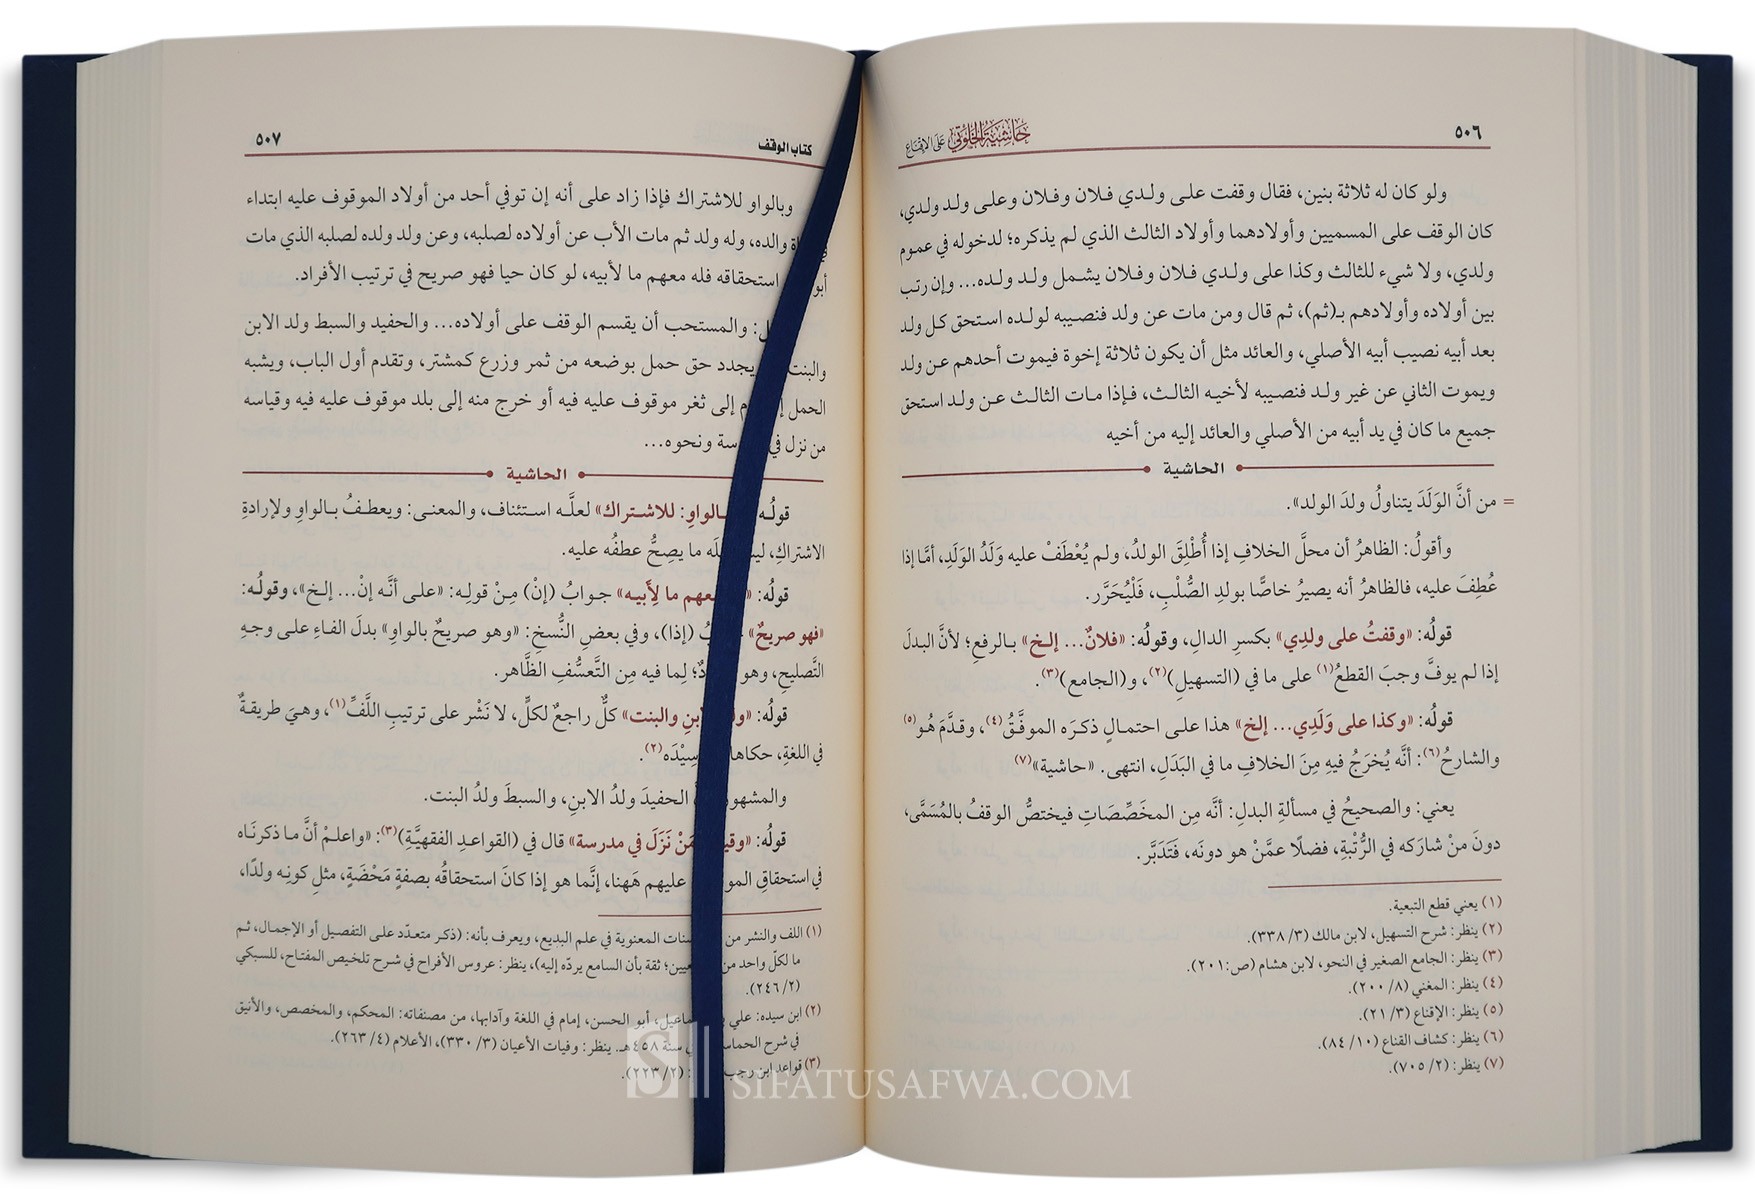 ٥٠٦
حاشية الخلوتي على الإقناع
ولو كان له ثلاثة بنين، فقال وقفت على ولدي فلان وفلان وعلى ولد ولدي،
كان الوقف على المسميين وأولادهما وأولاد الثالث الذي لم يذكره؛ لدخوله في عموم
ولدي، ولا شيء للثالث وكذا على ولدي فلان وفلان يشمل ولد ولده... وإن رتب
بين أولاده وأولادهم بـ(ثم)، ثم قال ومن مات عن ولد فنصيبه لولده استحق كل ولد
بعد أبيه نصيب أبيه الأصلي، والعائد مثل أن يكون ثلاثة إخوة فيموت أحدهم عن ولد
ويموت الثاني عن غير ولد فنصيبه لأخيه الثالث، فإذا مات الثالث عن ولد استحق
جميع ما كان في يد أبيه من الأصلي والعائد إليه من أخيه
الحاشية
= من أنَّ الوَلَدَ يتناولُ ولدَ الولد».
وأقولُ: الظاهرُ أن محلَّ الخلافِ إذا أُطْلِقَ الولدُ، ولم يُعْطَفْ عليه وَلَدُ الوَلَدِ، أمَّا إذا
عُطِفَ عليه، فالظاهرُ أنه يصيرُ خاصًّا بولدِ الصُّلْبِ، فَلْيُحَرَّر.
قولُه: «وقفتُ على ولدِي» بكسرِ الدالِ، وقولُه: «فلانٌ... إلخ» بالرفعِ؛ لأنَّ البدلَ
إذا لم يوفَّ وجبَ القطعُ(١) على ما في (التسهيلِ)(٢)، و(الجامع)(٣).
قولُه: «وكذا على وَلَدِي... إلخ» هذا على احتمالٍ ذكرَه الموفَّقُ(٤)، وقدَّمَ هُو(٥)
والشارحُ(٦): أنَّه يُخرَجُ فيهِ مِنَ الخلافِ ما في البَدَلِ، انتهى. «حاشية»(٧)
يعني: والصحيحُ في مسألةِ البدلِ: أنَّه مِن المخَصِّصَاتِ فيختصُّ الوقفُ بالمُسَمَّى،
دونَ مَنْ شاركَه في الرُّتْبةِ، فضلًا عمَّنْ هو دونَه، فَتَدَبَّر.
(١) يعني قطع التبعية.
(٢) ينظر: شرح التسهيل، لابن مالك (٣/ ٣٣٨).
(٣) ينظر: الجامع الصغير في النحو، لابن هشام (ص:٢٠١).
(٤) ينظر: المغني (٨/ ٢٠٠).
(٥) ينظر: الإقناع (٣/ ٢١).
(٦) ينظر: كشاف القناع (١٠/ ٨٤).
(٧) ينظر: (٢/ ٧٠٥).
كتاب الوقف
٥٠٧
وبالواو للاشتراك فإذا زاد على أنه إن توفي أحد من أولاد الموقوف عليه ابتداء
والده، وله ولد ثم مات الأب عن أولاده لصلبه، وعن ولد ولده لصلبه الذي مات
استحقاقه فله معهم ما لأبيه، لو كان حيا فهو صريح في ترتيب الأفراد.
والمستحب أن يقسم الوقف على أولاده... والحفيد والسبط ولد الابن
والبنت يجدد حق حمل بوضعه من ثمر وزرع كمشتر، وتقدم أول الباب، ويشبه
الحمل إلى ثغر موقوف عليه فيه أو خرج منه إلى بلد موقوف عليه فيه وقياسه
من نزل في ونحوه...
الحاشية
قولُه: للاشتراك» لعلَّه استئناف، والمعنى: ويعطفُ بالواوِ ولإرادةِ
الاشتراكِ، ما يصِحُّ عطفُه عليه.
قولُه: ما لِأَبيه» جوابُ (إنْ) مِنْ قولِه: «على أنَّه إنْ... إلخ»، وقولُه:
«فهو صريحٌ» (إذا)، وفي بعضِ النُّسخِ: «وهو صريحٌ بالواوِ» بدلَ الفاءِ على وجهِ
التَّصليحِ، وهو لِما فيه مِن التَّعسُّفِ الظَّاهر.
قولُه: والبنت» كلٌّ راجعٌ لكلٍّ، لا نَشْر على ترتيبِ اللَّفِّ(١)، وهيَ طريقةٌ
في اللغةِ، حكاها سِيْدَه(٢).
والمشهور الحفيدَ ولدُ الابنِ، والسبطَ ولدُ البنت.
قولُه: نَزَلَ في مدرسة» قال في (القواعدِ الفقهيَّةِ)(٣): «واعلمْ أنَّ ما ذكرنَاه
في استحقاقِ عليهم هَهنا، إنَّما هو إذا كانَ استحقاقُه بصفةٍ مَحْضَةٍ، مثلِ كونِه ولدًا،
(١) اللف والنشر من المعنوية في علم البديع، ويعرف بأنه: (ذكر متعدّد على التفصيل أو الإجمال، ثم
ما لكلّ واحد من ثقة بأن السامع يردّه إليه)، ينظر: عروس الأفراح في شرح تلخيص المفتاح، للسبكي
(٢/ ٢٤٦).
(٢) ابن سيده: علي أبو الحسن، إمام في اللغة وآدابها، من مصنفاته: المحكم، والمخصص، والأنيق
في شرح سنة ٤٥٨هـ. ينظر: وفيات الأعيان (٣/ ٣٣٠)، الأعلام (٤/ ٢٦٣).
(٣) قواعد ابن رجب (٢/ ٢٢٣).
SIFATUSAFWA.COM